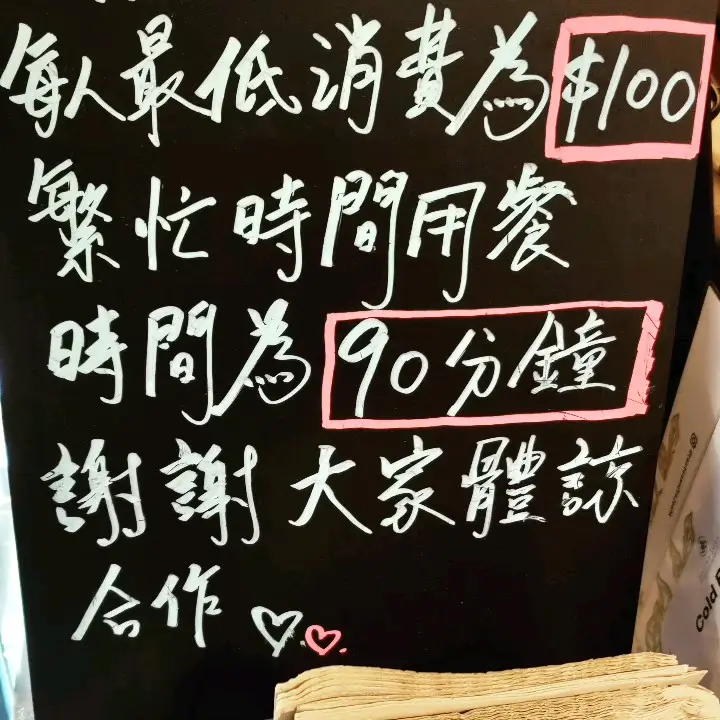 每人最低消費為$100
繁忙時間用餐
時間為90分鐘
謝謝大家體諒
合作
Cold